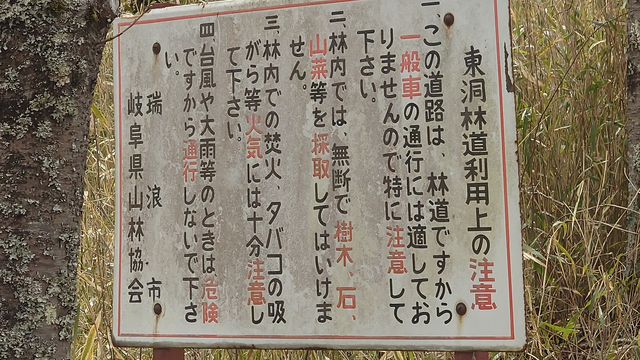 東洞林道利用上の注意
一この道路は、林道ですから
一般車の通行には適してお
りませんので特に注意して
下さい。
二林内では、無断で樹木、石、
山菜等を採取してはいけま
せん。
三林内での焚火、タバコの吸
がら等火気には十分注意し
て下さい。
四台風や大雨等のときは危険
ですから通行しないで下さ
い。
瑞浪市
岐阜県山林協会